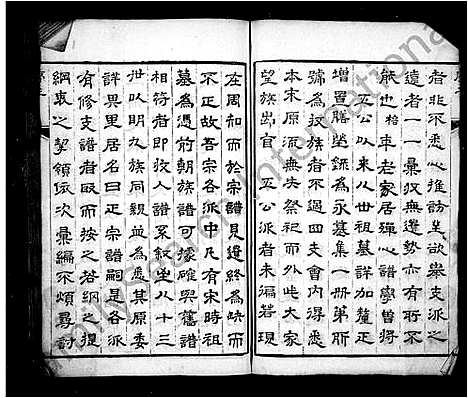 者非不悉心推訪並欲舉支派之
遠者一一彙收無遺勢亦有所不
能也 車老家居殫心譜學曾將
五公以來八世祖墓詳加釐正
增置膳塋錄為永墓集一冊第所
號為收族者不過四支會內得悉
本末原流無失祭祀而外此大家
望族出自 五公派者未徧若現
在周知而於宗譜見遺終為缺而
不正故吾宗各派中凡有宋時祖
墓為憑前朝族譜可據確與舊譜
相符者即收入譜系敘坐以十三
世以明九族同親並為悉其原委
詳異里居名曰正宗譜嗣是各派
有修支譜者取而按之若綱之提
綱衷之挈領依次彙編不煩尋討